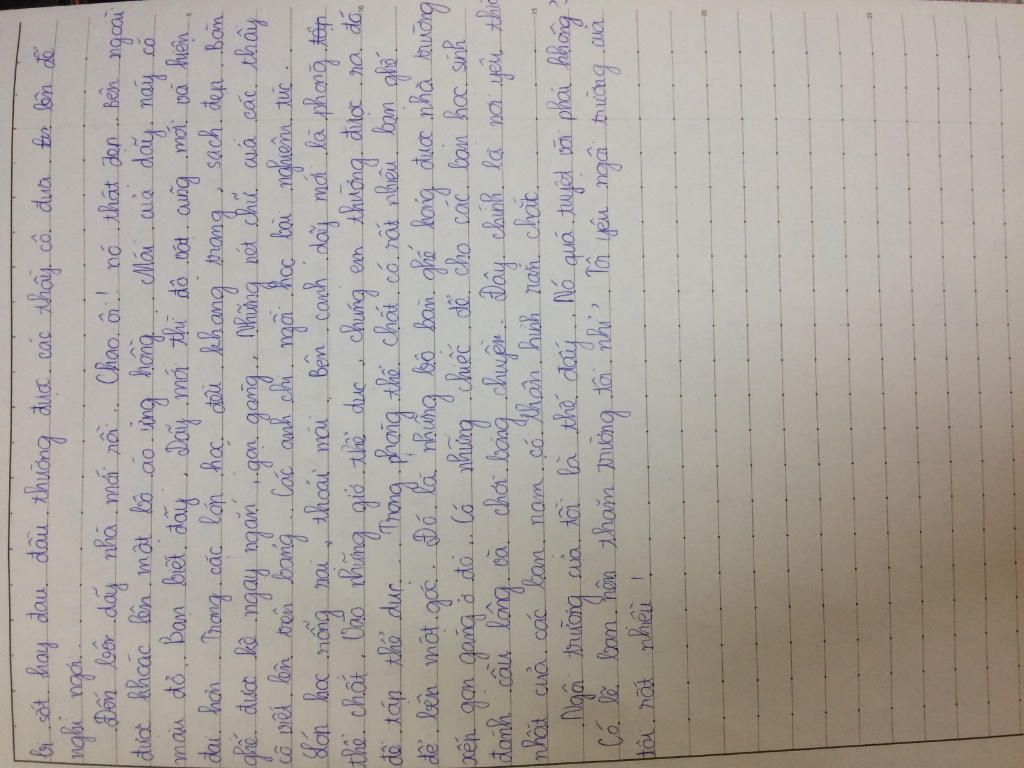 bị sốt hay đau đầu thường được các thầy cô đưa lên đó để
nghỉ ngơi.
Đến bên dãy nhà mới rồi. Chao ôi! nó thật đẹp. Bên ngoài
được khoác lên một bộ áo ửng hồng. Mái của dãy này có
màu đỏ. Bạn biết đấy. Dãy mới thì đồ vật cũng mới và hiện
đại hơn. Trong các lớp học đều khang trang, sạch đẹp. Bàn
ghế được kê ngay ngắn, gọn gàng. Những nét chữ của các thầy
cô viết lên trên bảng. Các anh chị ngồi học bài nghiêm túc.
Lớp học rộng rãi, thoải mái. Bên cạnh dãy mới là phòng
thể chất. Vào những giờ thể dục, chúng em thường được ra đó
để tập thể dục. Trong phòng thể chất có rất nhiều bàn ghế
để bên một góc. Đó là những bộ bàn ghế hỏng được nhà trường
xếp gọn gàng ở đó. Có những chiếc để cho các bạn học sinh
đánh cầu lông và chơi bóng chuyền. Đây chính là nơi yêu thích
nhất của các bạn nam có thân hình rắn chắc.
Ngôi trường của tôi là thế đấy. Nó quá tuyệt vời phải không?
Có lẽ bạn nên thăm trường tôi nhỉ, Tôi yêu ngôi trường của
tôi rất nhiều!